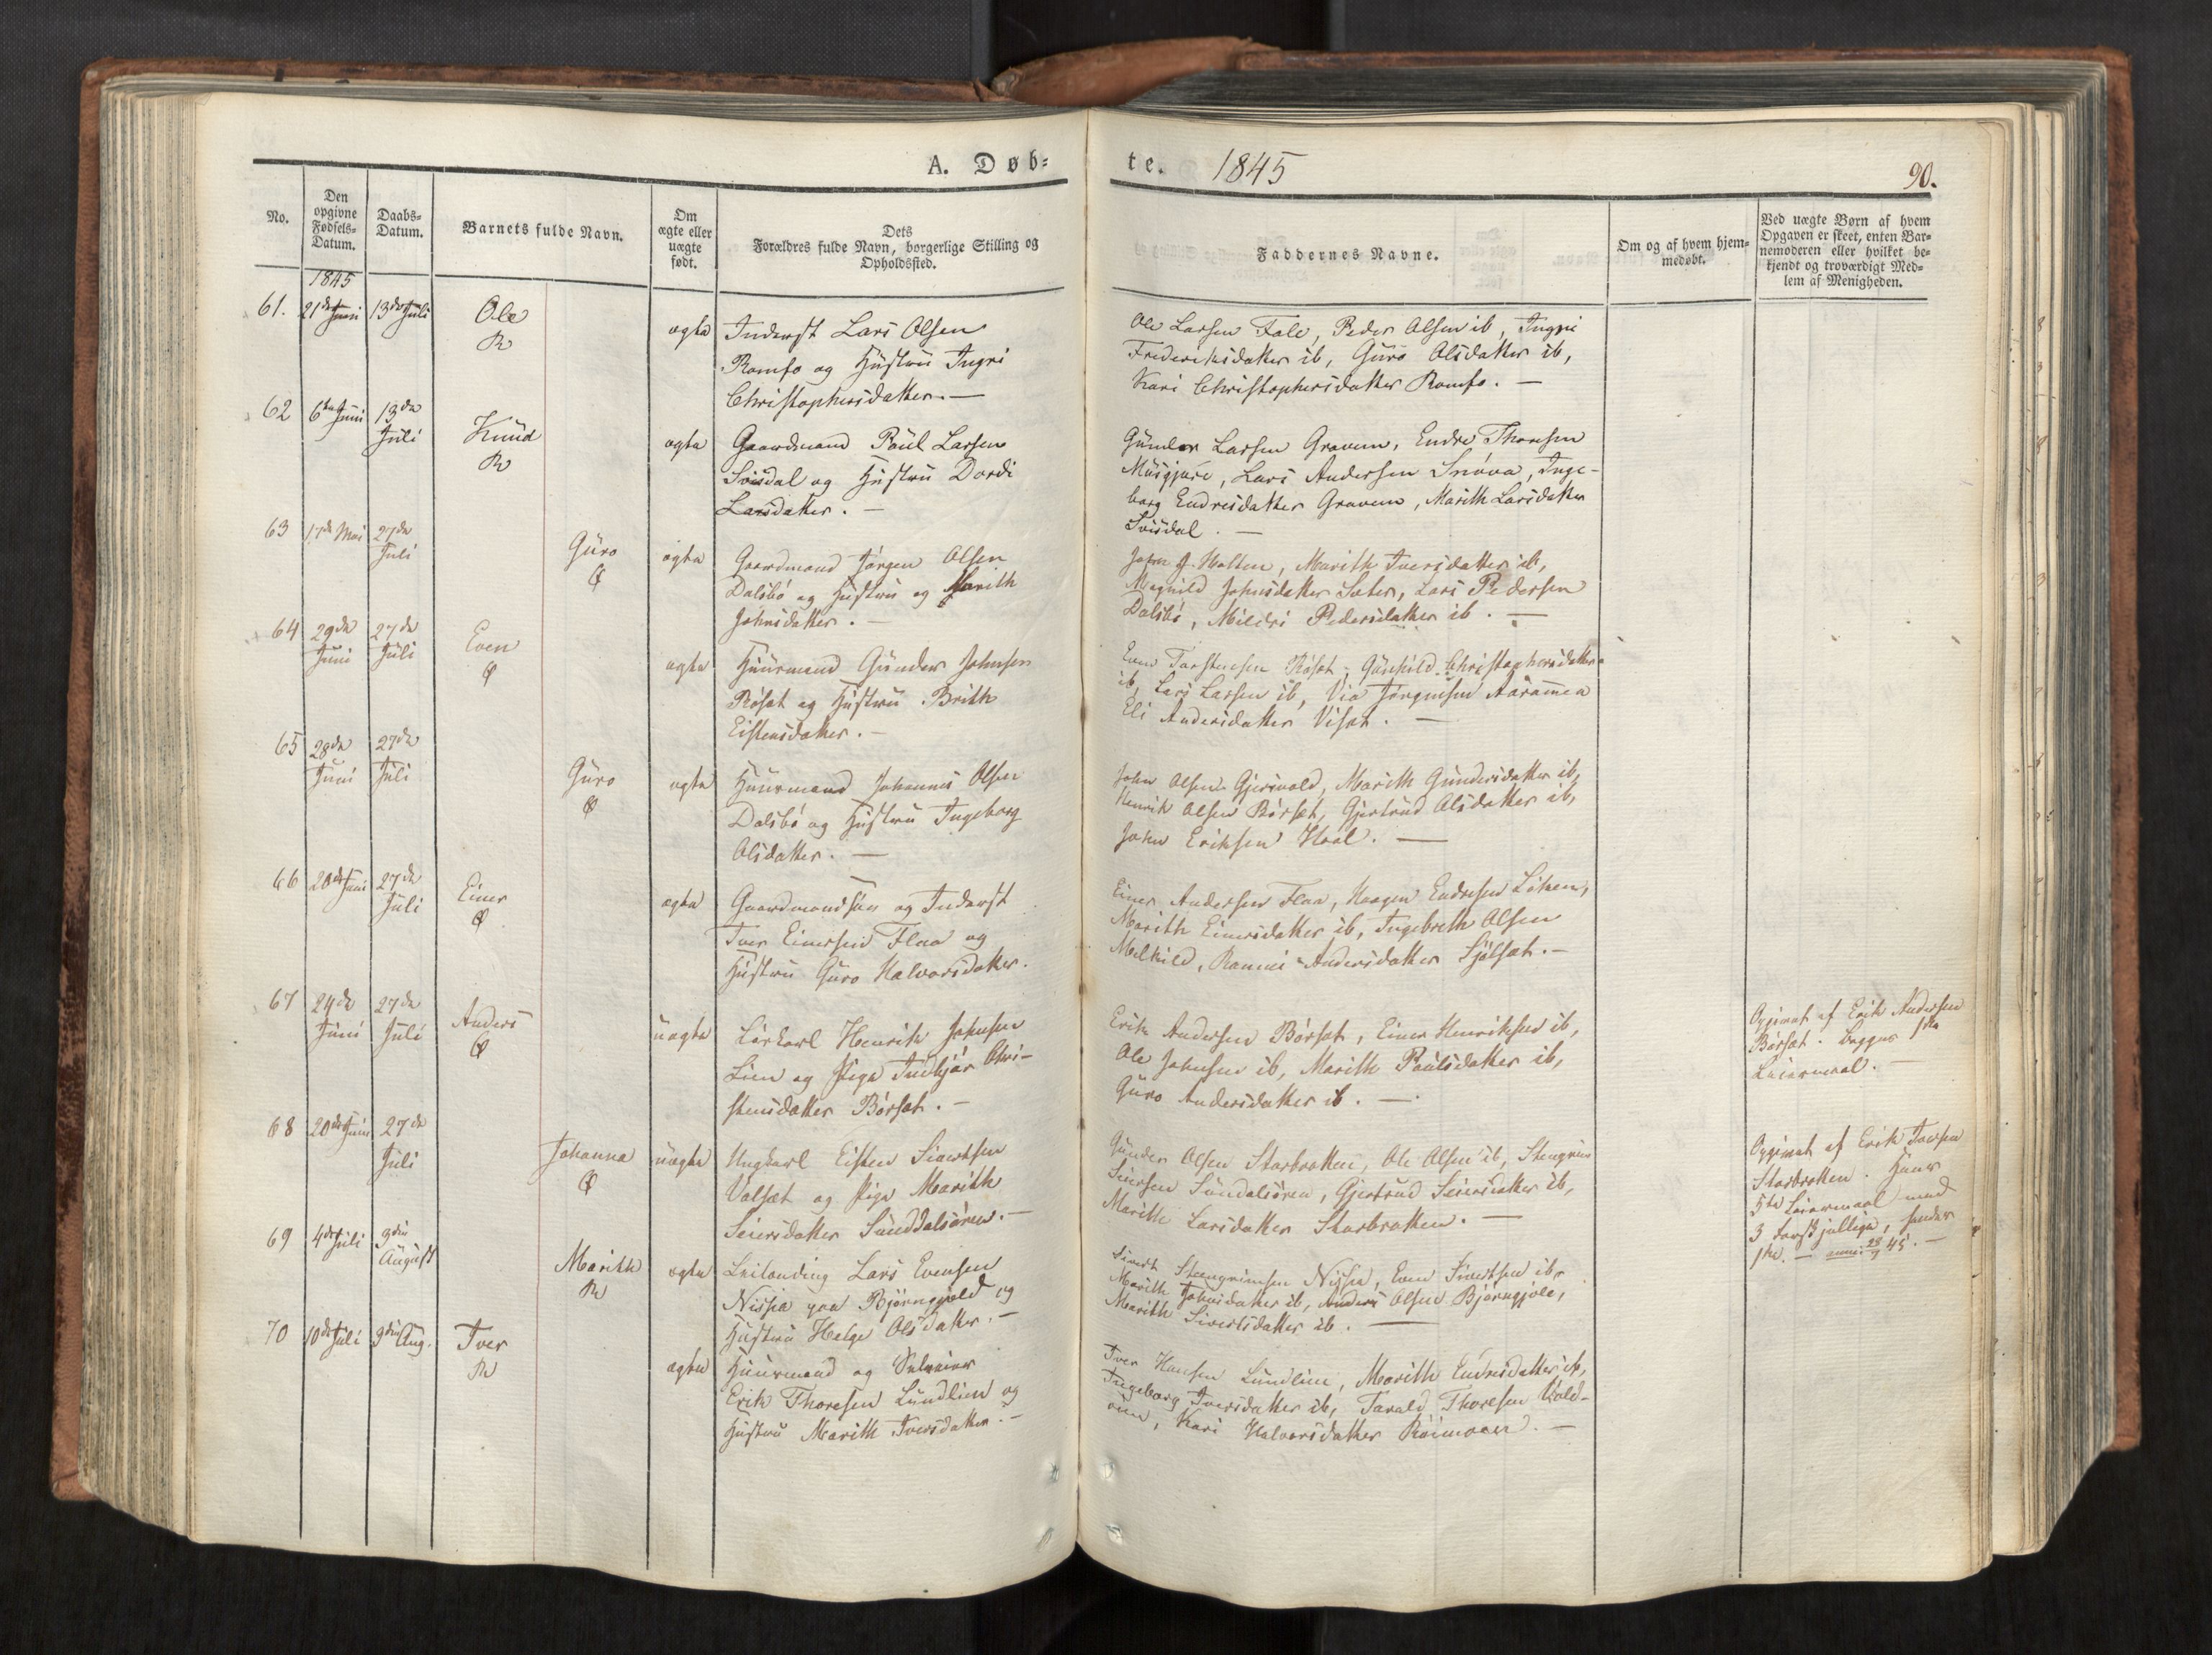 A. Døb=
No.
Den opgivne Fødsels= Datum.
Daabs= Datum.
Barnets fulde Navn.
Om ægte eller uægte født.
Dets Forældres fulde Navn, borgerlige Stilling og Opholdssted.
1845
61. 21de Juni 13de Juli Ole R ægte Inderst Lars Olsen
Romfo og Hustru Ingri
Christophersdatter. —
62 6te Juni 13de Juli Knud R ægte Gaardmand Poul Larsen
Svisdal og Hustru Dordi
Larsdatter. —
63 17de Mai 27de Juli Guro ægte Gaardmand Jørgen Olsen
Dalsbø og Hustru og Marith
Johnsdatter. —
64 29de Juni 27de Juli Even ægte Huusmand Gunder Johnsen
Røsæt og Hustru Brith
Eistensdatter. —
65 28de Juni 27de Juli Guro ægte Huusmand Johannes Olsen
Dalsbø og Hustru Ingeborg
Olsdatter. —
66 20de Juni 27de Juli Einer ægte Gaardmandsøn og Inderst
Iver Einersen Flaa og
Hustru Guro Halvorsdatter.
67 24de Juni 27de Juli Anders uægte Henrik Johnsen
Lien og Pige Chri-
stensdatter Børsæt. —
68 20de Juni 27de Juli Johanna uægte Ungkarl Eisten Sivertsen
Valsæt og Pige Marith
Seiersdatter Sunddalsøren. —
69 4de Juli 3die August Marith R ægte Leilending Lars Evensen
Nisja paa Bjørngjeld og
Hustru Helge Olsdatter. —
70 10de Juli 3die Aug. Iver R ægte Huusmand og Selveier
Erik Thoresen Lundlien og
Hustru Marith Iversdatter. —
te. 1845 90.
Faddernes Navne.
Om og af hvem hjem= medøbt.
Ved uægte Børn af hvem
Opgaven er skeet, enten Bar=
nemoderen eller hvilket be=
kjendt og troværdigt Med=
lem af Menigheden.
Ole Larsen Fale, Peder Olsen ib, Ingri
Frederiksdatter ib, Guro Olsdatter ib,
Kari Christophersdatter Romfo. —
Larsen Gravem, Endre Thoresen
Musgjære, Lars Andersen Snøva, Inge-
borg Endresdatter Gravem, Marith Larsdatter
Svisdal. —
John J. Holten, Marith Iversdatter ib,
Magnild Johnsdatter Sæter, Lars Pedersen
Dalsbø, Mildri Pedersdatter ib. —
Even Torstensen Røsæt, Gunhild Christophersdatter
ib, Lars Larsen ib, Jørgensen
Eli Andersdatter Visæt. —
John Olsen Gjersvold, Marith Gundersdatter ib,
Henrik Olsen Børsæt, Gjertrud Olsdatter ib,
John Eriksen Hoel. —
Einer Andersen Flaa, Haagen Endresen Løken,
Marith Einersdatter ib, Ingebreth Olsen
Melkild, Andersdatter Sjølsæt. —
Erik Andersen Børsæt, Einer Henriksen ib,
Ole Johnsen ib, Marith Poulsdatter ib,
Guro Andersdatter ib. —
Opgivet af Erik Andersen
Børsæt. Begges 1ste
Leiermaal. —
Gunder Olsen Storbrotten, Ole Olsen ib, Stengrim
Seiersen Sundalsøren, Gjertrud Seiersdatter ib,
Marith Larsdatter Storbrotten. —
Opgivet af Erik Iversen
Storbrotten. Hans
5te Leiermaal med
3 forskjellige, hendes
1ste. — 45. —
Sivert Steengrimsen Nisja, Even Sivertsen ib,
Marith Johnsdatter ib, Anders Olsen Bjørngjele,
Marith Sivertsdatter ib. —
Iver Hansen Lundlien, Marith Endresdatter ib,
Ingeborg Iversdatter ib, Tarald Thoresen Hold-
øien, Kari Halvorsdatter Røimoen. —